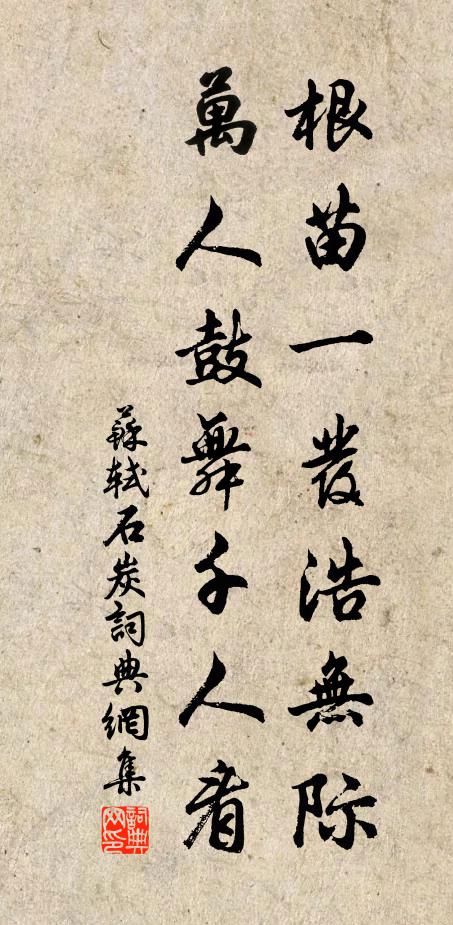 根苗一發浩無際
萬人鼓舞千人看
蘇軾石炭詞典網集
詞典網印